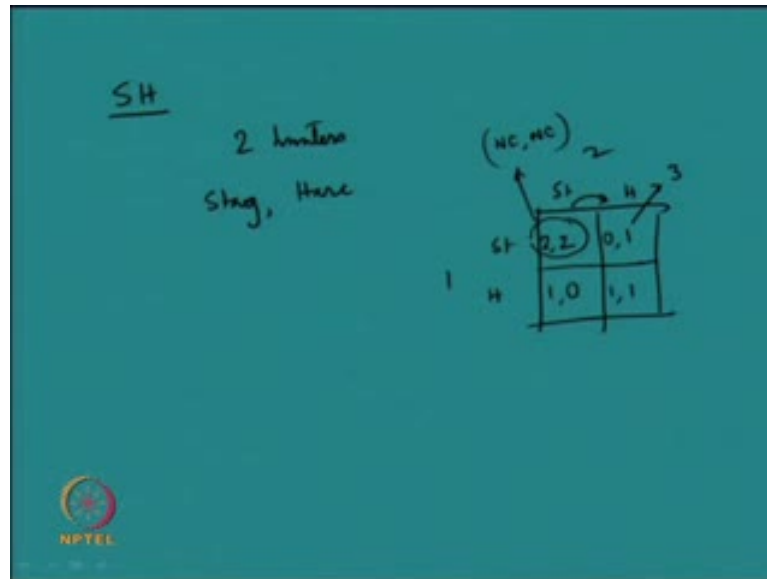 SH
2 hunters
Stag, Hare
(NC, NC)
2
3
St H
St 2,2 0,1
1
H 1,0 1,1
NPTEL